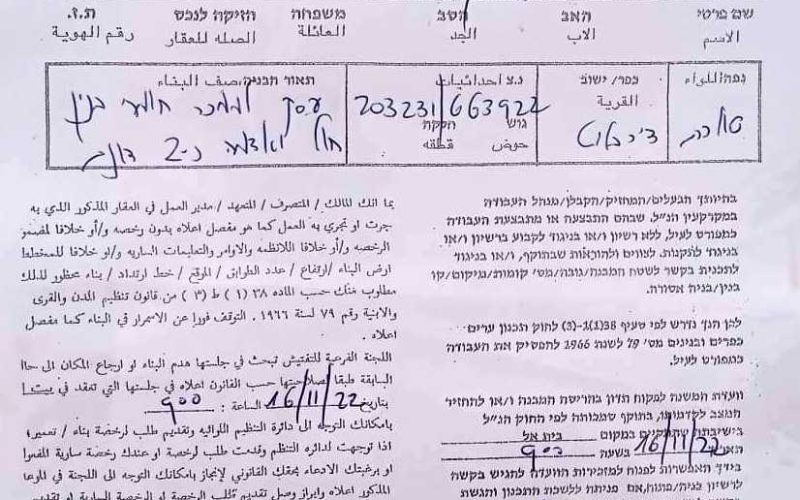 שם פרטי האב הסב משפחה זיקה לנכס ת.ז.
الاسم الاب الجد العائلة الصله للعقار رقم الهوية
נפה/اللواء כפר/ישוב נ.צ احداثيات תאור הבניה/وصف البناء
القرية 203231/663922
גוש חלקה
حوض قطعه
טולכרם
2
בהיותך הבעלים/המחזיק/הקבלן/מנהל העבודה
במקרקעין הנ"ל, שבהם התבצעה או מתבצעת העבודה
כמפורט לעיל, ללא רשיון ו/או בניגוד לקבוע ברשיון ו/או
בניגוד לתקנות, לצווים ולהוראות שבתוקף, ו/או בניגוד
לתכנית בקשר לשטח המבנה/גובה/מס' קומות/מיקום/קו
בנין/בניה אסורה.
לכן הנך נדרש לפי סעיף 38(1)(ג-1) לחוק תכנון ערים
כפרים ובנינים מס' 79 לשנת 1966 להפסיק את העבודה
כמפורט לעיל.
וועדת המשנה לפקוח תדון בהריסת המבנה ו/או להחזיר
המצב לקדמותו, בתוקף סמכותה לפי החוק הנ"ל
בישיבתה שתתקיים במקום בית אל
16/11/22 בשעה 900
בידך האפשרות לפנות למזכירות הוועדה להגיש בקשה
לרשיון בניה/פתוח/אם פניתה ללשכת התכנון והגשת
بما انك المالك / المتصرف / المتعهد / مدير العمل في العقار المذكور الذي به
جرت او تجري به العمل كما هو مفصل اعلاه بدون رخصه و/أو خلافا لمضمو
الرخصه و/أو خلافا للانظمه والاوامر والتعليمات الساريه و/او خلافا للمخطط
ارض البناء /ارتفاع / عدد الطوابق / الموقع / خط ارتداد / بناء محظور لذلك
مطلوب منك حسب الماده ٣٨ (١) ط (٣) من قانون تنظيم المدن والقرى
والابنية رقم ٧٩ لسنة ١٩٦٦. التوقف فورا عن الاسمرار في البناء كما مفصل
اعلاه .
اللجنة الفرعية للتفتيش تبحث في جلستها هدم البناء او ارجاع المكان الى حالا
السابقة طبقا لصلاحيتها حسب القانون اعلاه في جلستها التي تعقد في بيت ا
بتاريخ 16/11/22 الساعة : 900
بامكانك التوجه الى دائرة التنظيم اللوائيه وتقديم طلب لرخصة بناء / تعمير؛
اذا توجهت لدائره التنظم وقدمت طلب لرخصة او عندك رخصة سارية المفعوا
او برغبتك الادعاء بحقك القانوني لإنجاز بامكانك التوجه الى اللجنة في الموعا
المذكور اعلاه وابراز وصل تقديم طلب الرخصة او الرخصة السارية او تقديم